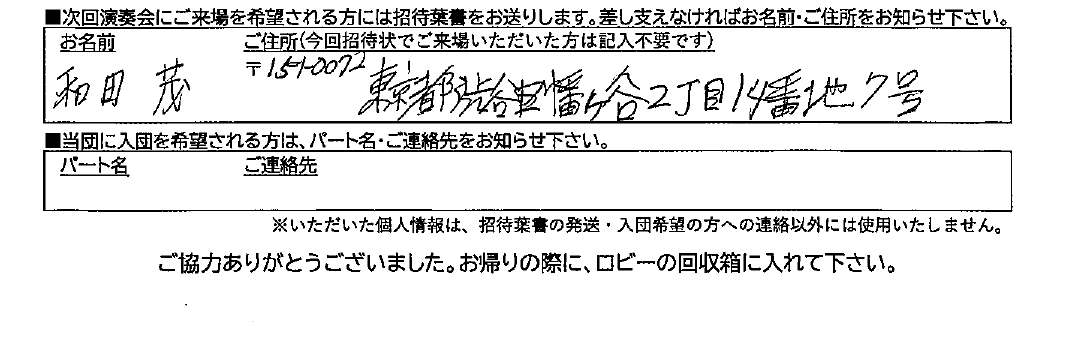 ■次回演奏会にご来場を希望される方には招待葉書をお送りします。差し支えなければお名前・ご住所をお知らせ下さい。
お名前 ご住所(今回招待状でご来場いただいた方は記入不要です)
〒151-0072
和田 茂 東京都渋谷区幡ヶ谷2丁目14番地7号
■当団に入団を希望される方は、パート名・ご連絡先をお知らせ下さい。
パート名 ご連絡先
※いただいた個人情報は、招待葉書の発送・入団希望の方への連絡以外には使用いたしません。
ご協力ありがとうございました。お帰りの際に、ロビーの回収箱に入れて下さい。